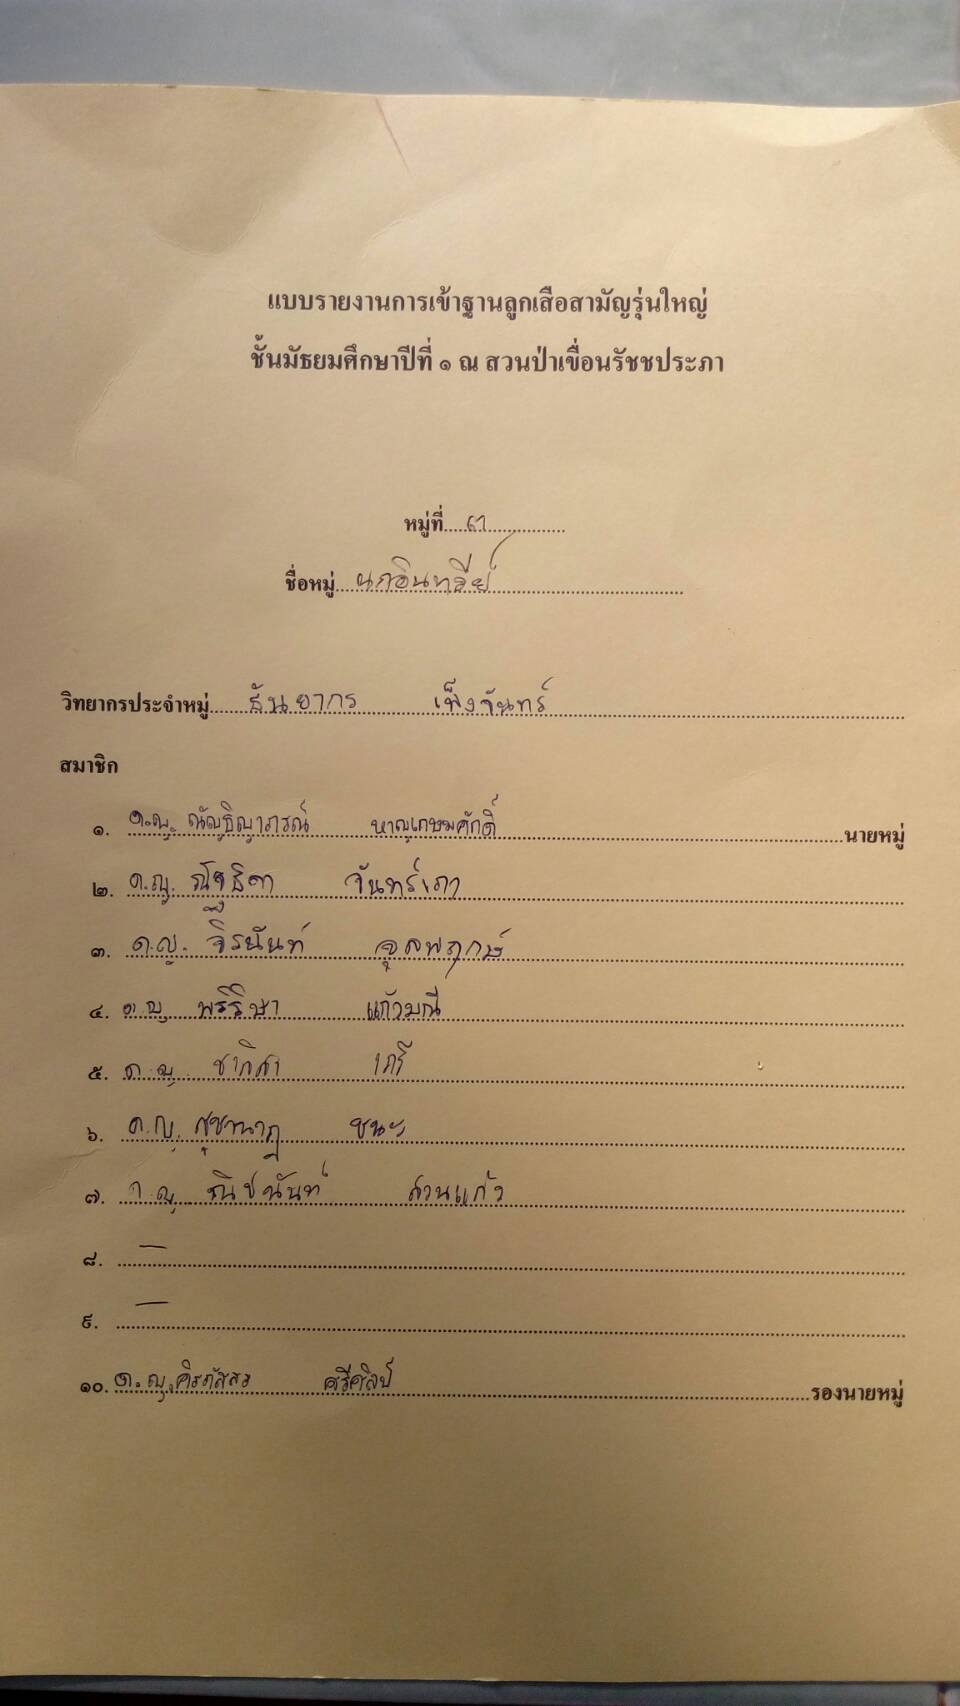 แบบรายงานการเข้าฐานลูกเสือสามัญรุ่นใหญ่
ชั้นมัธยมศึกษาปีที่ ๑ ณ สวนป่าเขื่อนรัชชประภา
หมู่ที่
ชื่อหมู่ นกอินทรีย์
วิทยากรประจำหมู่ ธันยากร เพ็งจันทร์
สมาชิก
๑. ด.ญ. ณัญธิญาภรณ์ หาญเกษมศักดิ์ นายหมู่
๒. ด.ญ. ณัฐธิดา จันทร์เภา
๓. ด.ญ. จิรนันท์ จุลพฤกษ์
๔. ด.ญ. พริริษา แก้วมณี
๕. ด.ญ. ชาลิสา เภรี
๖. ด.ญ. สุชานาฎ ชนะ
๗. ด.ญ. ณิชนันท์ สวนแก้ว
๘. –
๙. –
๑๐. ด.ญ. ศิรภัสสร ศรีศิลป์ รองนายหมู่